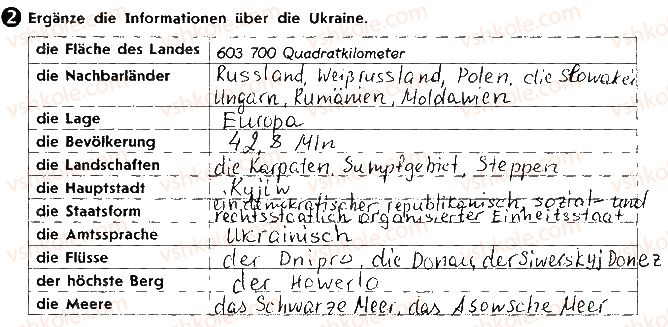 2 Ergänze die Informationen über die Ukraine.
die Fläche des Landes 603 700 Quadratkilometer
die Nachbarländer Russland, Weißrussland, Polen, die Slowakei
Ungarn, Rumänien, Moldawien
die Lage Europa
die Bevölkerung 42,8 Mln
die Landschaften die Karpaten, Sumpfgebiet, Steppen
die Hauptstadt Kyjiw
ein demokratischer, republikanisch, sozial- und
die Staatsform rechtsstaatlich organisierter Einheitsstaat
die Amtssprache Ukrainisch
die Flüsse der Dnipro, die Donau, der Siwerskyj Donez
der höchste Berg der Howerla
die Meere das Schwarze Meer, das Asowsche Meer